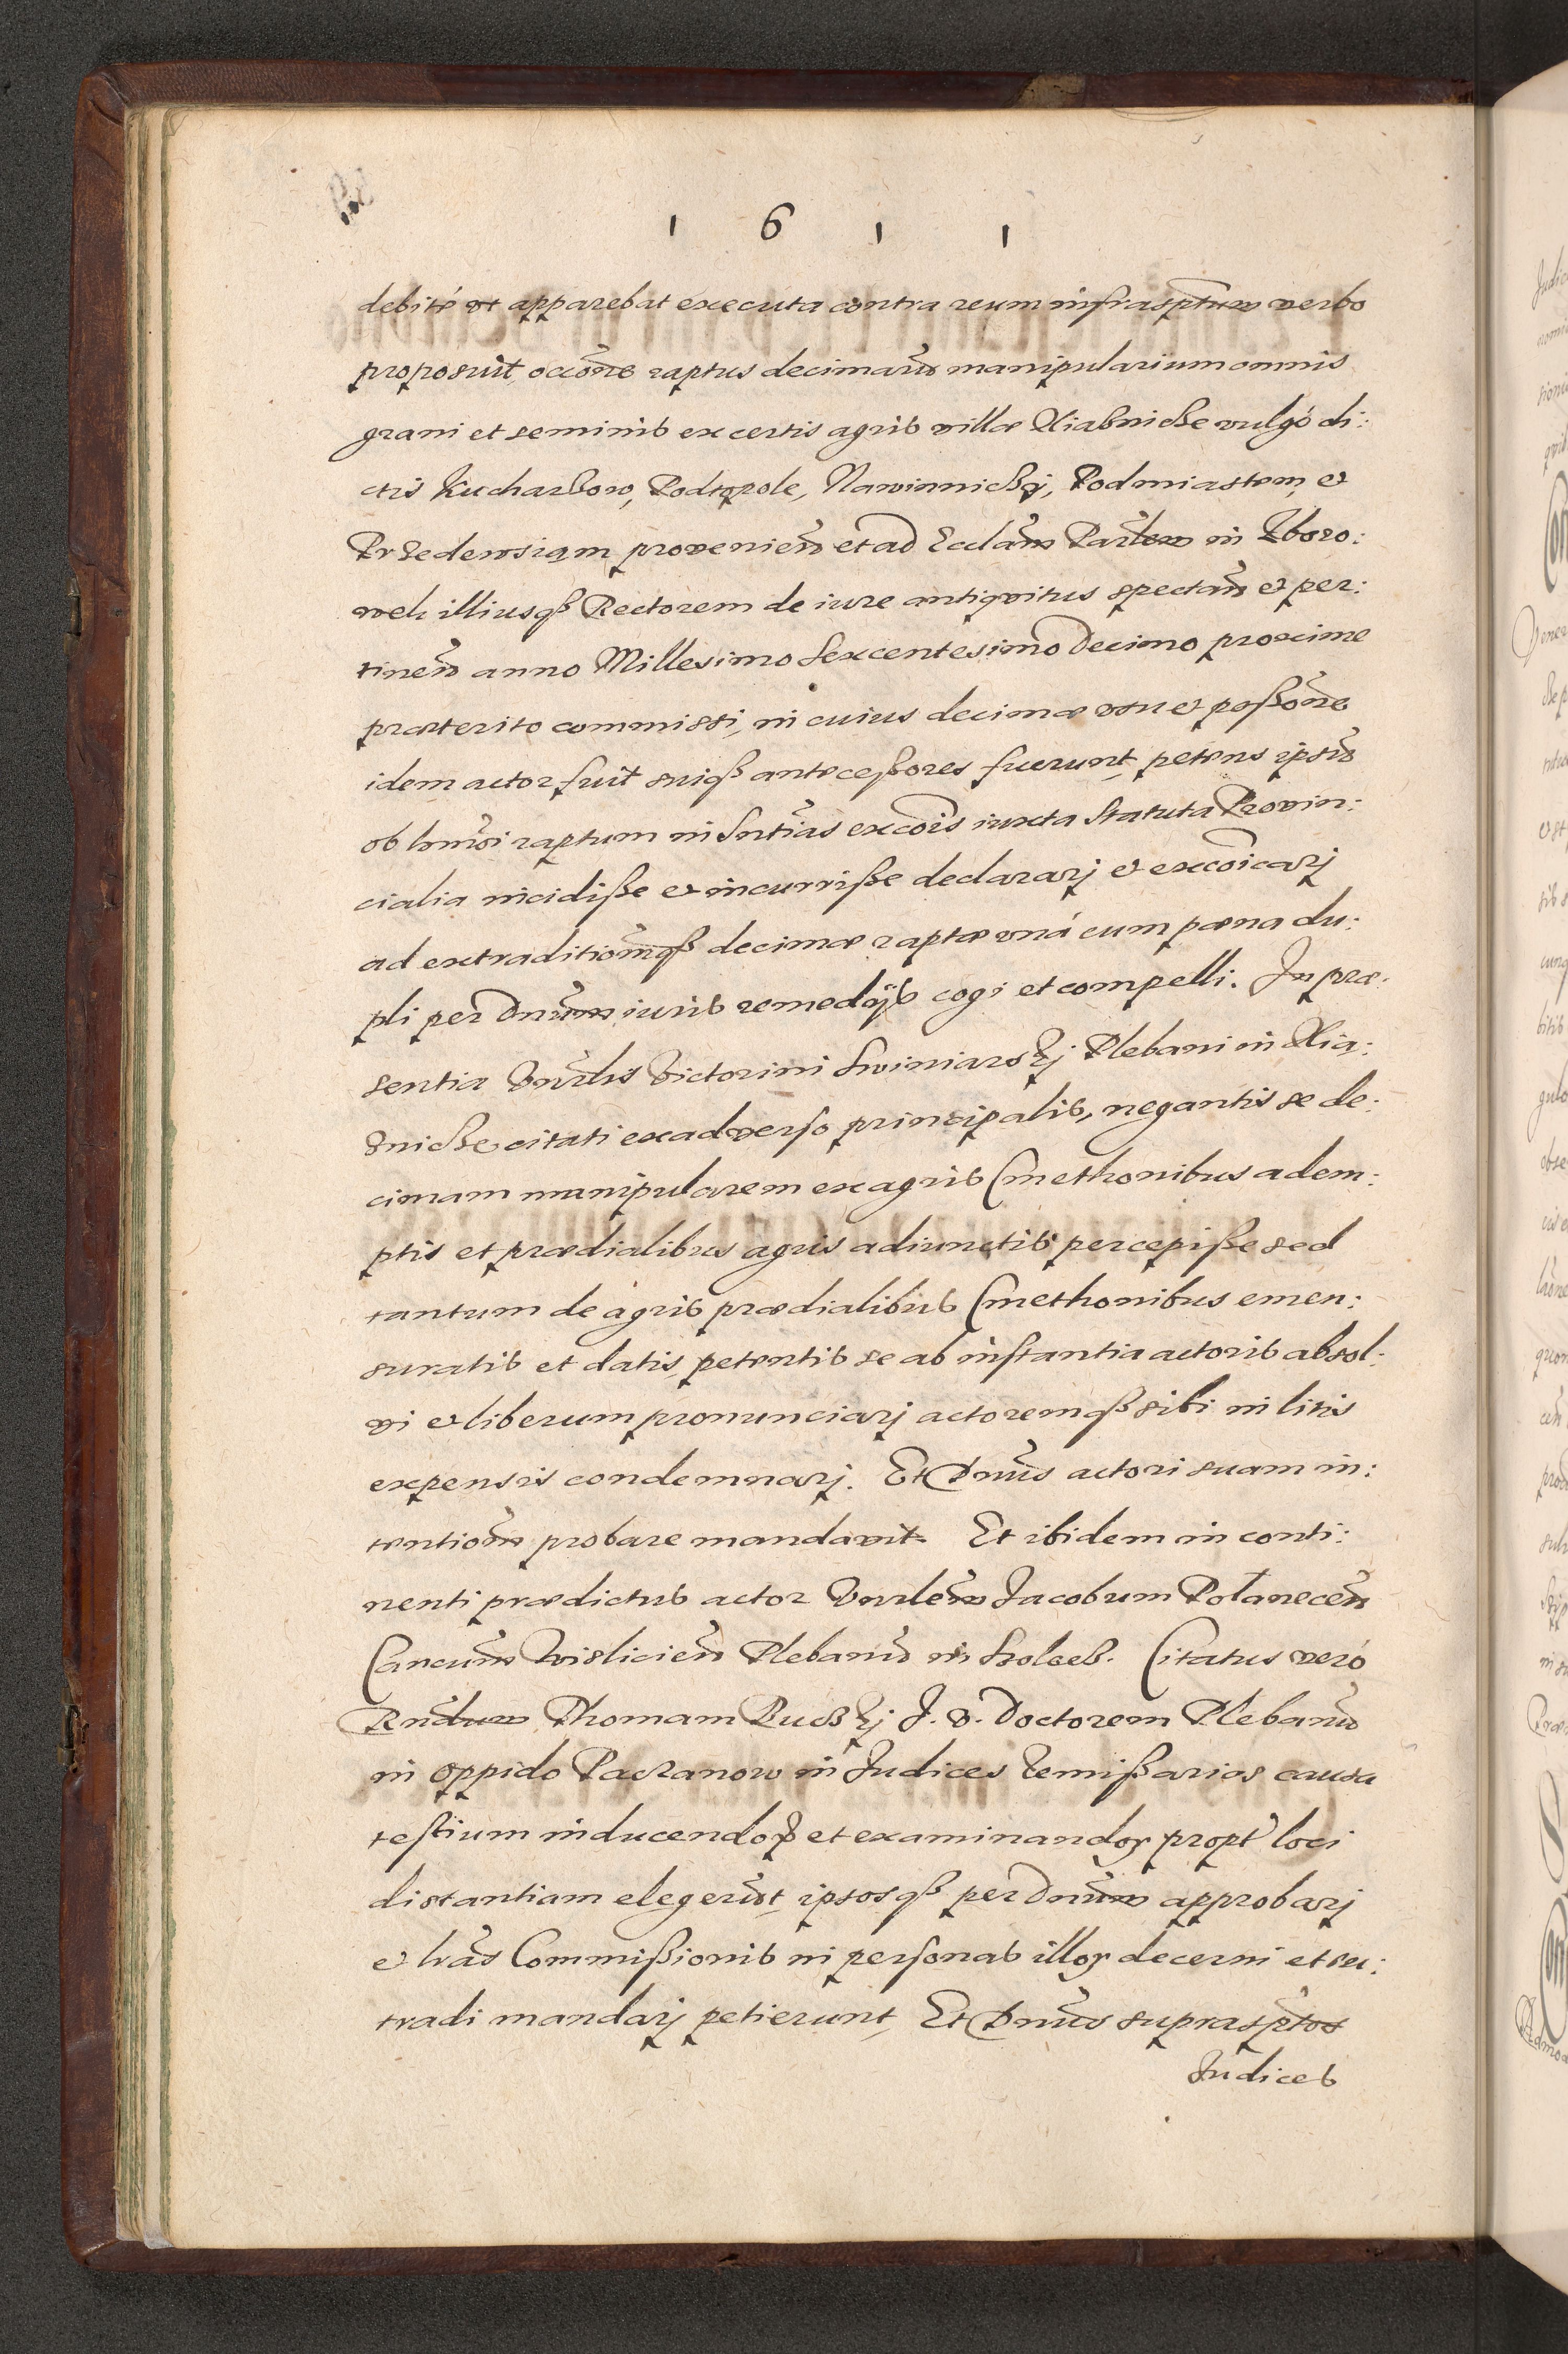 1 6 1 1
debité vt apparebat executa contra reum infrasptum verbo
proposuit, occõne raptus decimarũ manipularium omnis
grani et seminis ex certis agris villæ Xiąsnicze vulgó di:
ctis Kucharkow, Podtopole, Nawinnickÿ, Podmiastem, et
proveniẽ et ad Ecclãm Parlem in Zboro:
wek illiusqß Rectorem de iure antiqvitus spectañ et per:
tineñ anno Millesimo Sexcentesimo Decimo proxime
præterito commissi, in cuius decimæ vsu et poßõne
idem actor fuit suiqß anteceßores fuerunt, petens ipsũ
ob hmõi raptum in Sntĩas excõis iuxta Statuta Provin:
cialia incidiße et incurriße declararj et excõicarj
ad extraditiõmqß decimæ raptæ vná cum pæna du:
pli per Dnũm iuris remedÿs cogi et compelli. In præ:
sentia Vnrlis Victorini Swiniarskj Plebani in Xią:
snicze citati ex adverso principalis, negantis se de:
cimam manipularem ex agris Cmethonibus adem:
ptis et prædialibus agris adiunctis percepiße sed
tantum de agris prædialibus Cmethonibus emen:
suratis et datis, petentis se ab instantia actoris absol:
vi et liberum pronunciarj actoremqß sibi in litis
expensis condemnarj. Et Dnũs actori suam in:
tentiõm probare mandavit. Et ibidem in conti:
nenti prædictus actor Vnrlẽm Jacobum Połanecẽn
Cancũm Wislicieñ Plebanũ in Citatus veró
Rndum Thomam Ruczkj J. V. Doctorem Plebanũ
in oppido Paczanow in Judices Remißarios causa
testium inducendoꝝ et examinandoꝝ propt' loci
distantiam elegerũt, ipsosqß per Dnũm approbarj
et lrãs Commißionis in personas illoꝝ decerni et ex:
tradi mandarj petierunt, Et Dnũs suprasptos
Judices